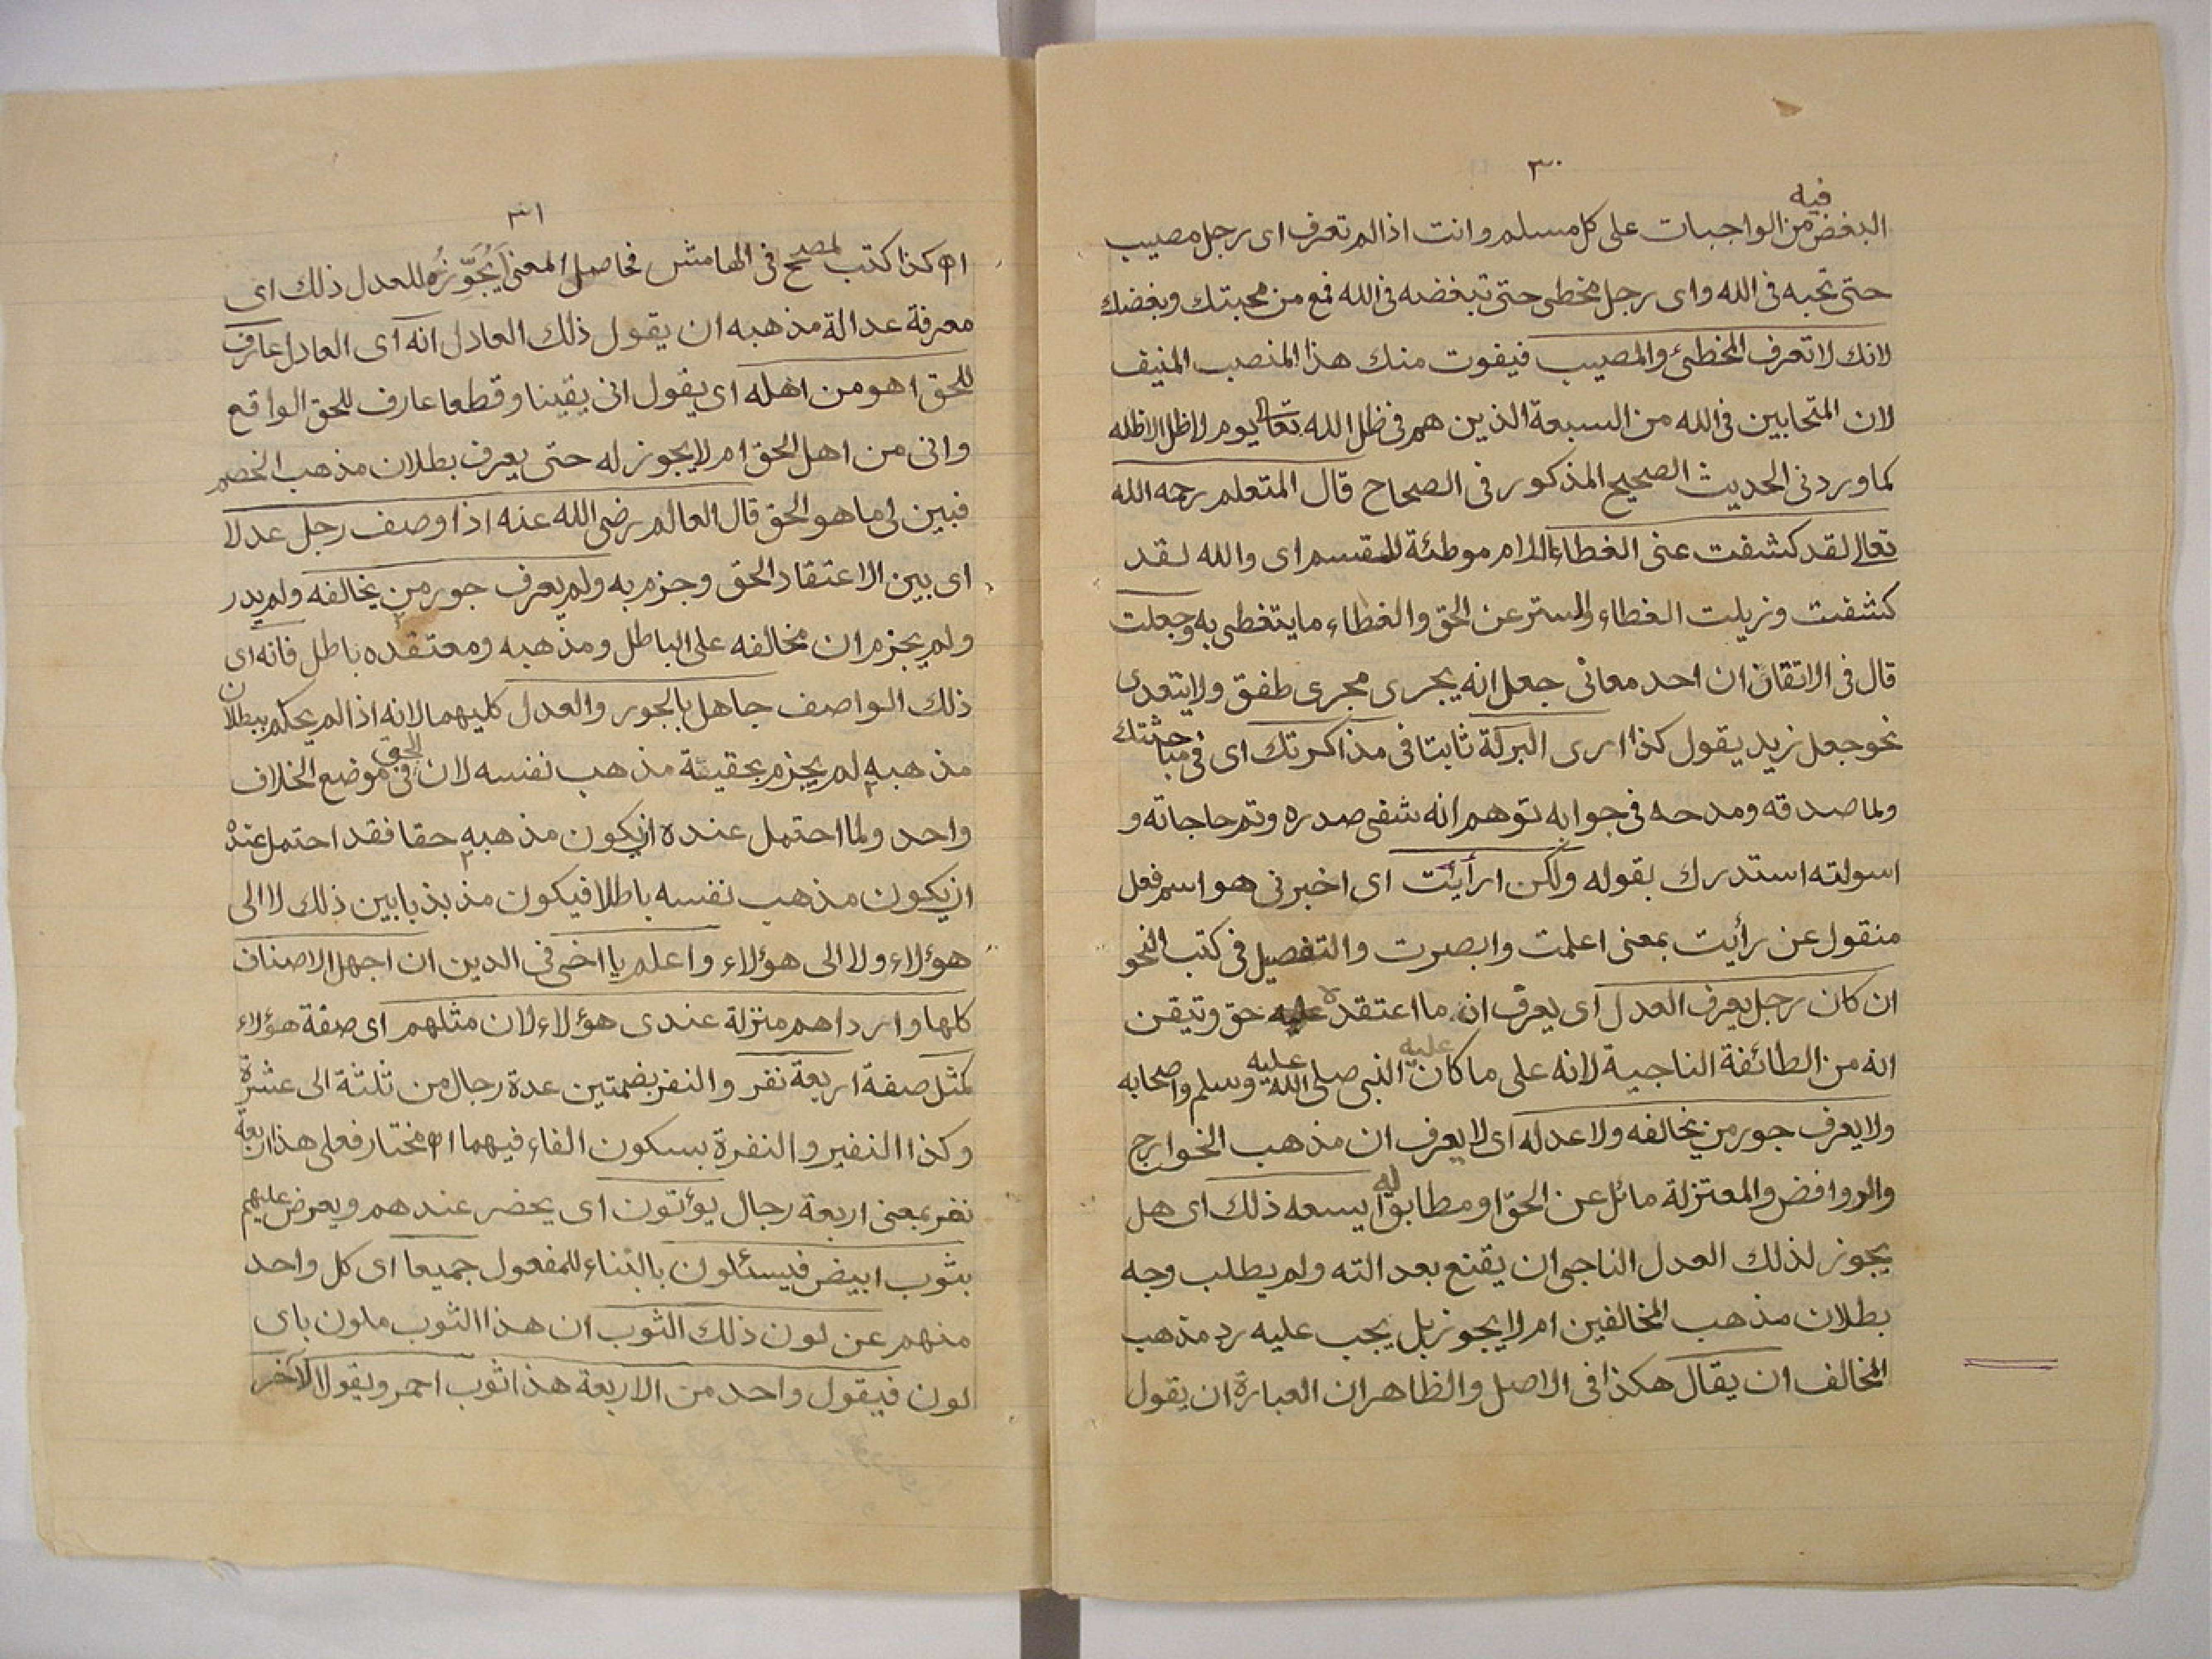 ٣٠
البغض فيه من الواجبات على كل مسلم وانت اذا لم تعرف اى رجل مصيب
حتى تحبه فى الله واى رجل مخطى حتى تبغضه فى الله فمع من محبتك وبغضك
لانك لا تعرف المخطئ والمصيب فيفوت منك هذا المنصب المنيف
لان المتحابين فى الله من السبعة الذين هم فى ظل الله تعالى يوم لا ظل الا ظله
كما ورد فى الحديث الصحيح المذكور فى الصحاح قال المتعلم رحمه الله
تعالى لقد كشفت عنى الغطاء اللام موطئة للقسم اى والله لقد
كشفت وزيلت الغطاء والستر عن الحق والغطاء ما يتغطى به وجعلت
قال فى الاتقان ان احد معانى جعل انه يجرى مجرى طفق ولا يتعدى
نحو جعل زيد يقول كذا ارى البركة ثابتا فى مذاكرتك اى فى مباحثتك
ولما صدقه ومدحه فى جوابه توهم انه شفى صدره وتم حاجاته و
اسولته استدرك بقوله ولكن ارأيت اى اخبرنى هو اسم فعل
منقول عن رأيت بمعنى اعلمت وابصرت والتفصيل فى كتب النحو
ان كان رجل يعرف العدل اى يعرف ان ما اعتقده عليه حق وتيقن
انه من الطائفة الناجية لانه على ما كان عليه النبى صلى الله عليه وسلم واصحابه
ولا يعرف جور من يخالفه ولا عدله اى لا يعرف ان مذهب الخوارج
والروافض والمعتزلة مائل عن الحق او مطابق له ايسعه ذلك اى هل
يجوز لذلك العدل الناجى ان يقنع بعدالته ولم يطلب وجه
بطلان مذهب المخالفين ام لا يجوز بل يجب عليه رد مذهب
المخالف ان يقال هكذا فى الاصل والظاهر ان العبارة ان يقول
٣١
اه كذا كتب لمصحح فى الهامش فحاصل المعنى أَيُجَوِّزُه للعدل ذلك اى
معرفة عدالة مذهبه ان يقول ذلك العادل انه اى العادل عارف
للحق اهو من اهله اى يقول انى يقينا وقطعا عارف للحق الواقع
وانى من اهل الحق ام لا يجوز له حتى يعرف بطلان مذهب الخصم
فبين لى ما هو الحق قال العالم رضى الله عنه اذا وصف رجل عدلا
اى بين الاعتقاد الحق وجزم به ولم يعرف جور من يخالفه ولم يدر
ولم يجزم ان مخالفه على الباطل ومذهبه ومعتقده باطل فانه اى
ذلك الواصف جاهل بالجور والعدل كليهما لانه اذا لم يحكم ببطلان
مذهبه لم يجزم بحقيقة مذهب نفسه لان الحق فى موضع الخلاف
واحد ولما احتمل عنده ان يكون مذهبه حقا فقد احتمل عنده
ان يكون مذهب نفسه باطلا فيكون مذبذبا بين ذلك لا الى
هؤلاء ولا الى هؤلاء واعلم يا اخى فى الدين ان اجهل الاصناف
كلها واردأهم منزلة عندى هؤلاء لان مثلهم اى صفة هؤلاء
كمثل صفة اربعة نفر والنفر بفتحتين عدة رجال من ثلثة الى عشرة
وكذا النفير والنفرة بسكون الفاء فيهما اه مختار فعلى هذا اربعة
نفر بمعنى اربعة رجال يؤتون اى يحضر عندهم ويعرض عليهم
بثوب ابيض فيسئلون بالبناء للمفعول جميعا اى كل واحد
منهم عن لون ذلك الثوب ان هذا الثوب ملون باى
لون فيقول واحد من الاربعة هذا ثوب احمر ويقول الآخر